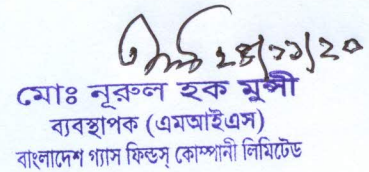 ২৪/১১/২০
মোঃ নূরুল হক মুন্সী
ব্যবস্থাপক (এমআইএস)
বাংলাদেশ গ্যাস ফিল্ডস্ কোম্পানী লিমিটেড